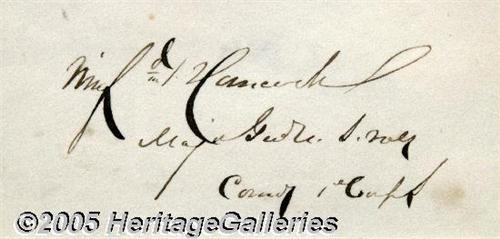 Winf d S Hancock
Maj Genl U.S. Vols
Comdg 1st Corps
©2005 HeritageGalleries